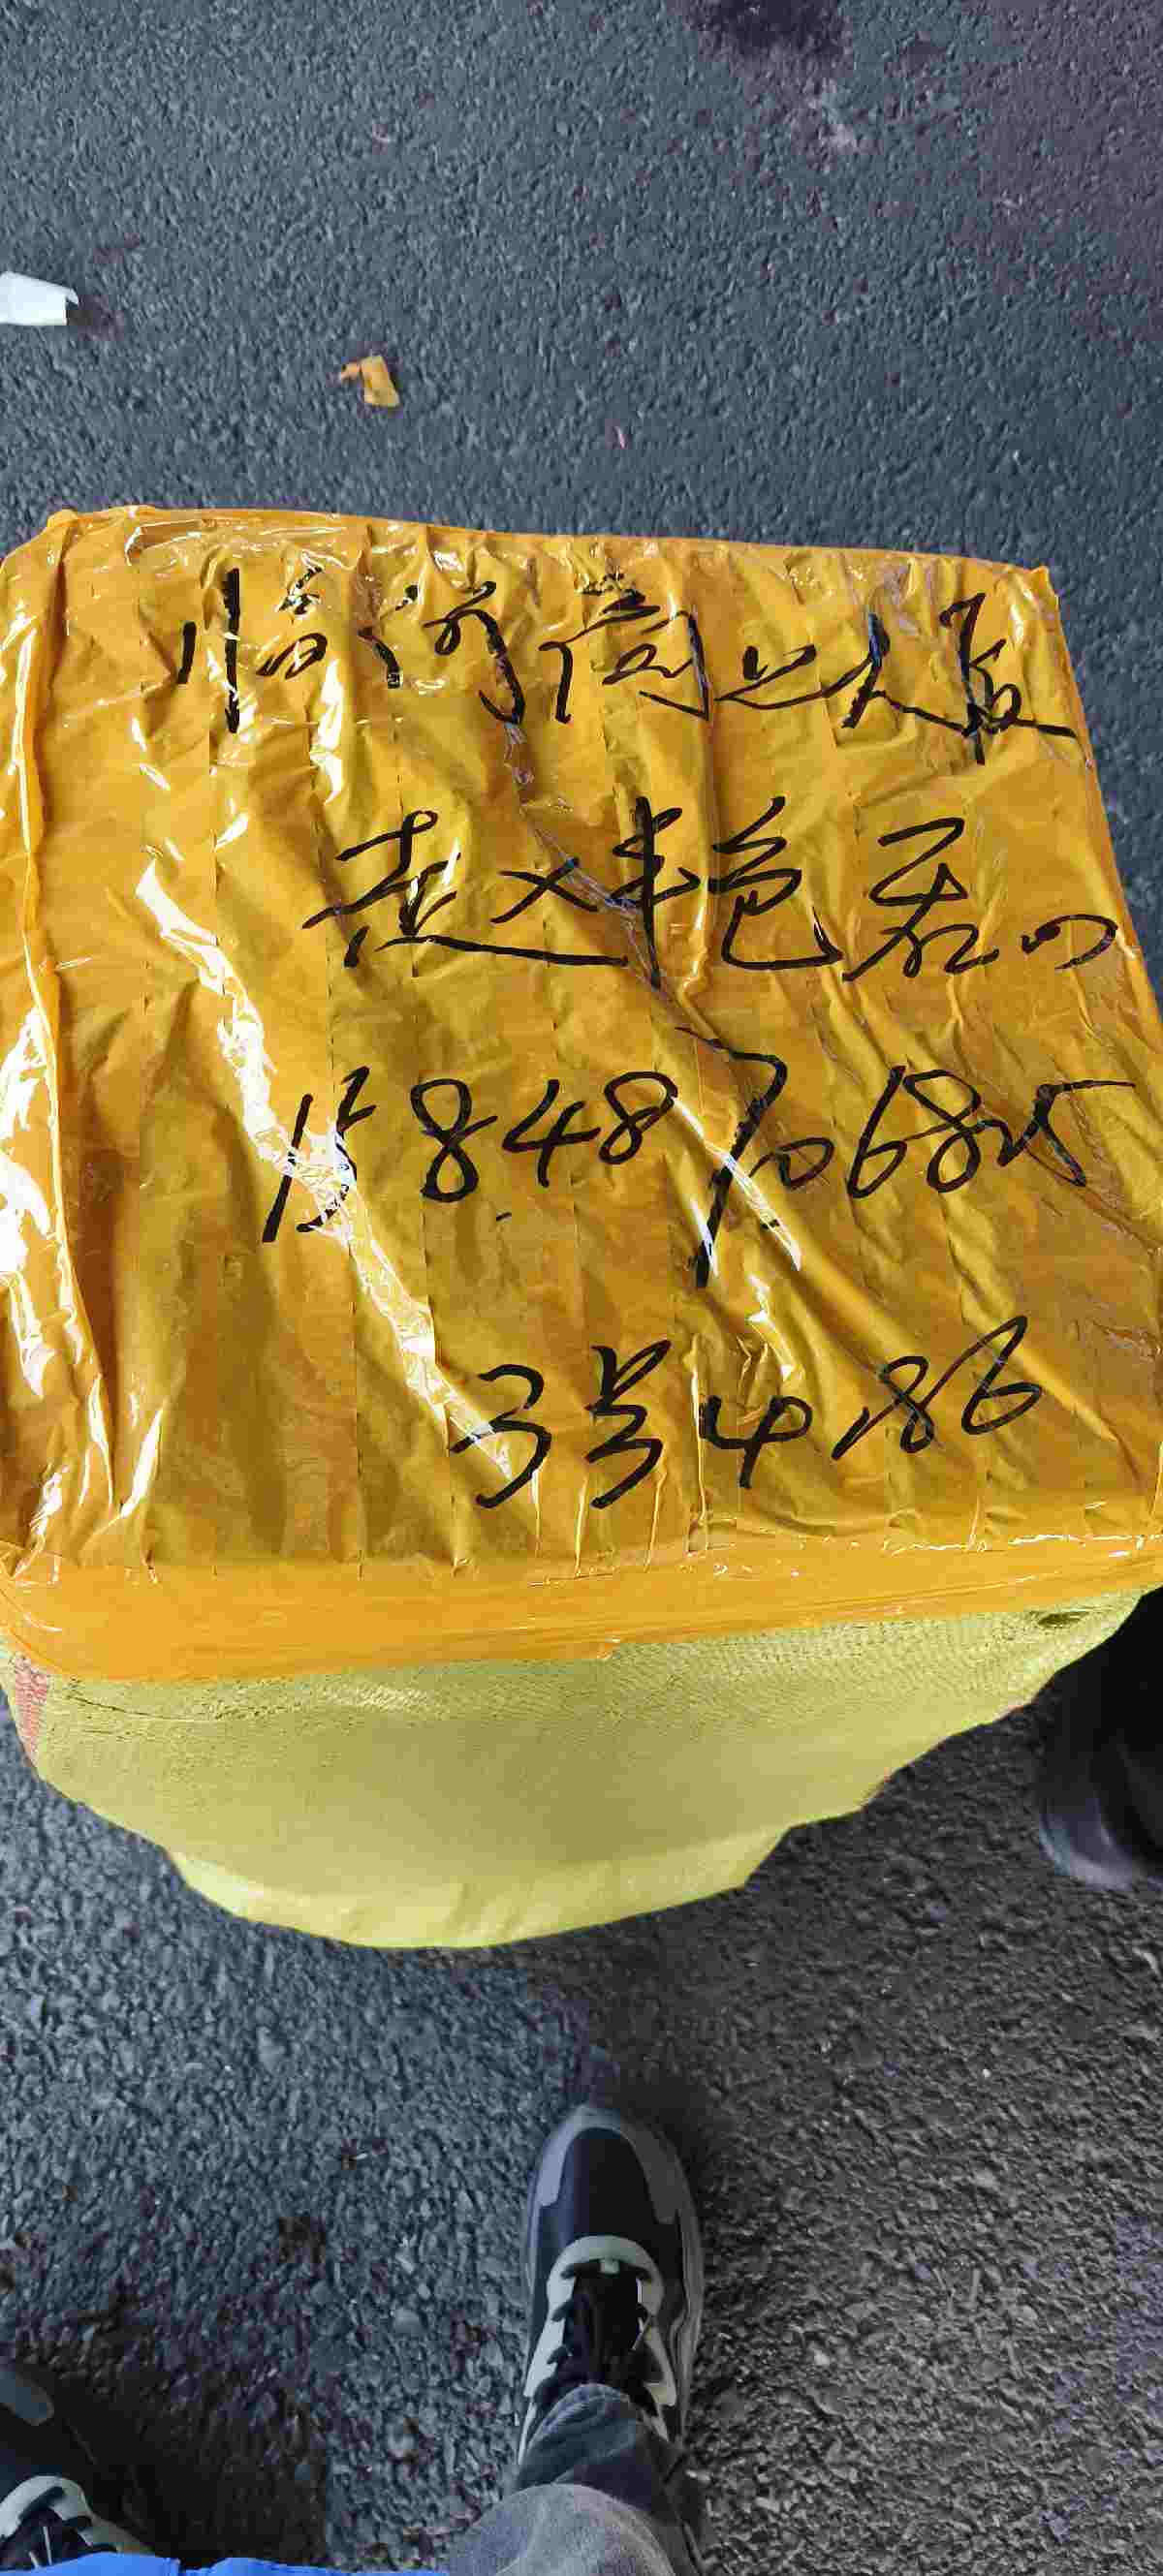 临河商业大厦
赵艳君
15848706825
3号4186